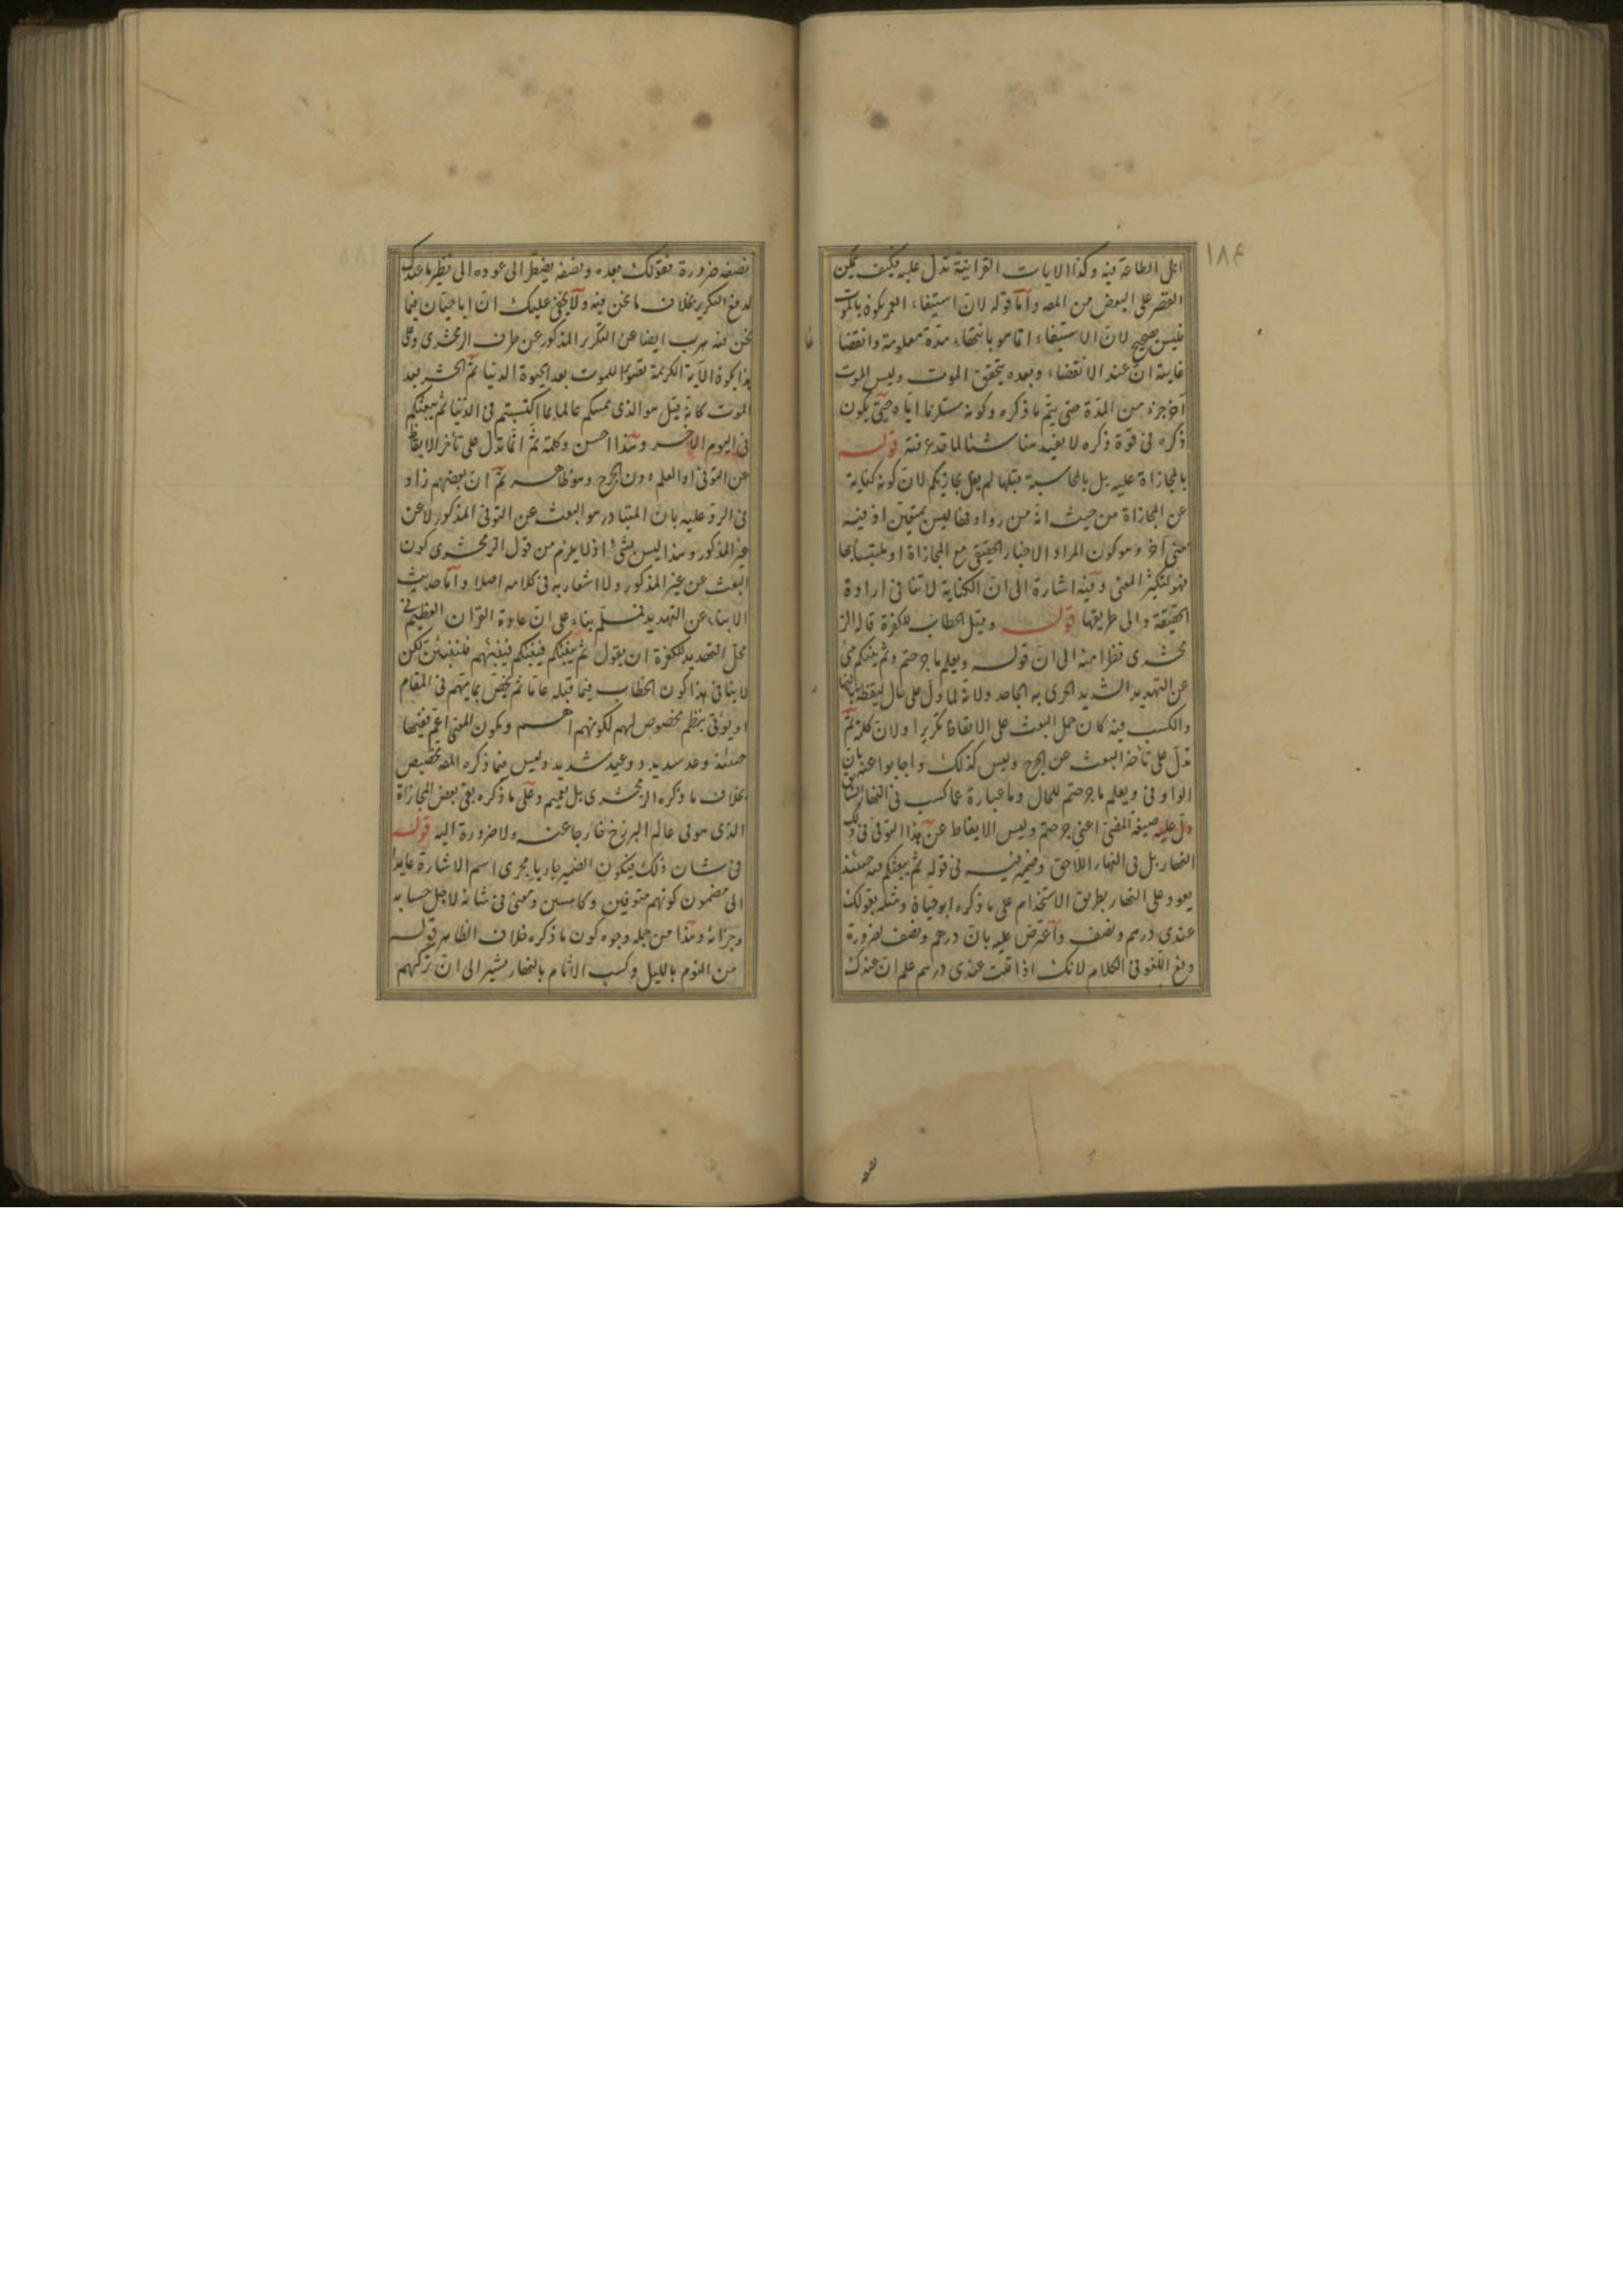 ١٨٤
اهل الطاعة فيه وكذا الايات القرانية تدل عليه فكيف يمكن
القصر على البعض من المص وأما قوله لان استيفاء العمر يكون بالموت
فليس بصحيح لان الاستيفاء انما هو بانتهاء مدة معلومة وانقضا
غايته ان عند الانقضاء وبعده يتحقق الموت وليس الموت
آخر جزء من المدة حتى يتم ما ذكره وكونه مستلزما اياه حتى يكون
ذكره فى قوة ذكره لا يفيد هنا شيئا لما قد عرفته قوله
بالمجازاة عليه بل بالمحاسبة قبلها لم يقل يجازيكم لان كونه كناية
عن المجازاة من حيث انه من روادفها ليس بمتعين اذ فيه
معنى آخر وهو كون المراد الاخبار الحقيقى مع المجازاة او ملتبسا بها
فهو لتكثير المعنى وفيه اشارة الى ان الكناية لا تنافى ارادة
الحقيقة والى طريقها قوله وقيل الخطاب للكفرة قاله الز
مخشرى نظرا منه الى ان قوله ويعلم ما جرحتم وثم ينبئكم
عن التهديد الشديد الحرى به الجاحد ولانه لما دل على حال اليقظة
والكسب فيه كان حمل البعث على الايقاظ تكريرا ولان كلمة ثم
تدل على تأخر البعث عن الجرح وليس كذلك واجابوا عنه بان
الواو فى ويعلم ما جرحتم للحال وما عبارة عما كسب فى النهار السابق
دل عليه صيغة المضى اعنى جرحتم وليس الايقاظ عن هذا التوفى فى ذلك
النهار بل فى النهار اللاحق وضمير فيه فى قوله ثم يبعثكم فيه حينئذ
يعود على النهار بطريق الاستخدام على ما ذكره ابو حيان ومثله بقولك
عندى درهم ونصف وأعترض عليه بان درهم ونصف لضرورة
دفع اللغو فى الكلام لانك اذا قلت عندى درهم علم ان عندك
نصفه ضرورة فقولك بعده ونصفه يضطر الى عوده الى نظير ما عندك
لدفع التكرير بخلاف ما نحن فيه ولا يخفى عليك ان ابا حيان فيما
نحن فيه هرب ايضا عن التكرير المذكور عن طرف الزمخشرى وقى
الآية الكريمة تصويرا للموت بعد الحيوة الدنيا ثم الحشر بعد
الموت كانه قيل هو الذى يمسككم عالما بما اكتسبتم فى الدنيا ثم يبعثكم
فى اليوم الآخر وهذا احسن وكلمة ثم انما تدل على تأخر الايقاظ
عن التوفى او العلم دون الجرح وهو ظاهر ثم ان بعضهم زاد
فى الرد عليه بان المتبادر هو البعث عن التوفى المذكور لا عن
غير المذكور وهذا ليس بشئ اذ لا يلزم من قول الزمخشرى كون
البعث عن غير المذكور ولا اشعار به فى كلامه اصلا وأما حديث
الانباء عن التهديد فمسلم بناء على ان عادة القران العظيم فى
محل التهديد للكفرة ان يقول ثم ينبئكم فينبئكم فينبئهم فلننبئن لكن
لا ينافى هذا كون الخطاب فيما قبله عاما ثم يخص بما يتهم فى المقام
او يؤتى بنظم مخصوص لهم لكونهم اهم ويكون المعنى اعم ففيها
حينئذ وعد سديد ووعيد شديد وليس فيما ذكره المص تخصيص
بخلاف ما ذكره الزمخشرى بل تعميم وعلى ما ذكره بقى بعض المجازاة
الذى هو فى عالم البرزخ خارجا عنه ولا ضرورة اليه قوله
فى شان ذلك فيكون الضمير جاريا مجرى اسم الاشارة عايدا
الى مضمون كونهم متوفين وكاسبين ومعنى فى شانه لاجل حسابه
وجزائه وهذا من جملة وجوه كون ما ذكره خلاف الظاهر قوله
من النوم بالليل وكسب الاثام بالنهار يشير الى ان تركهم